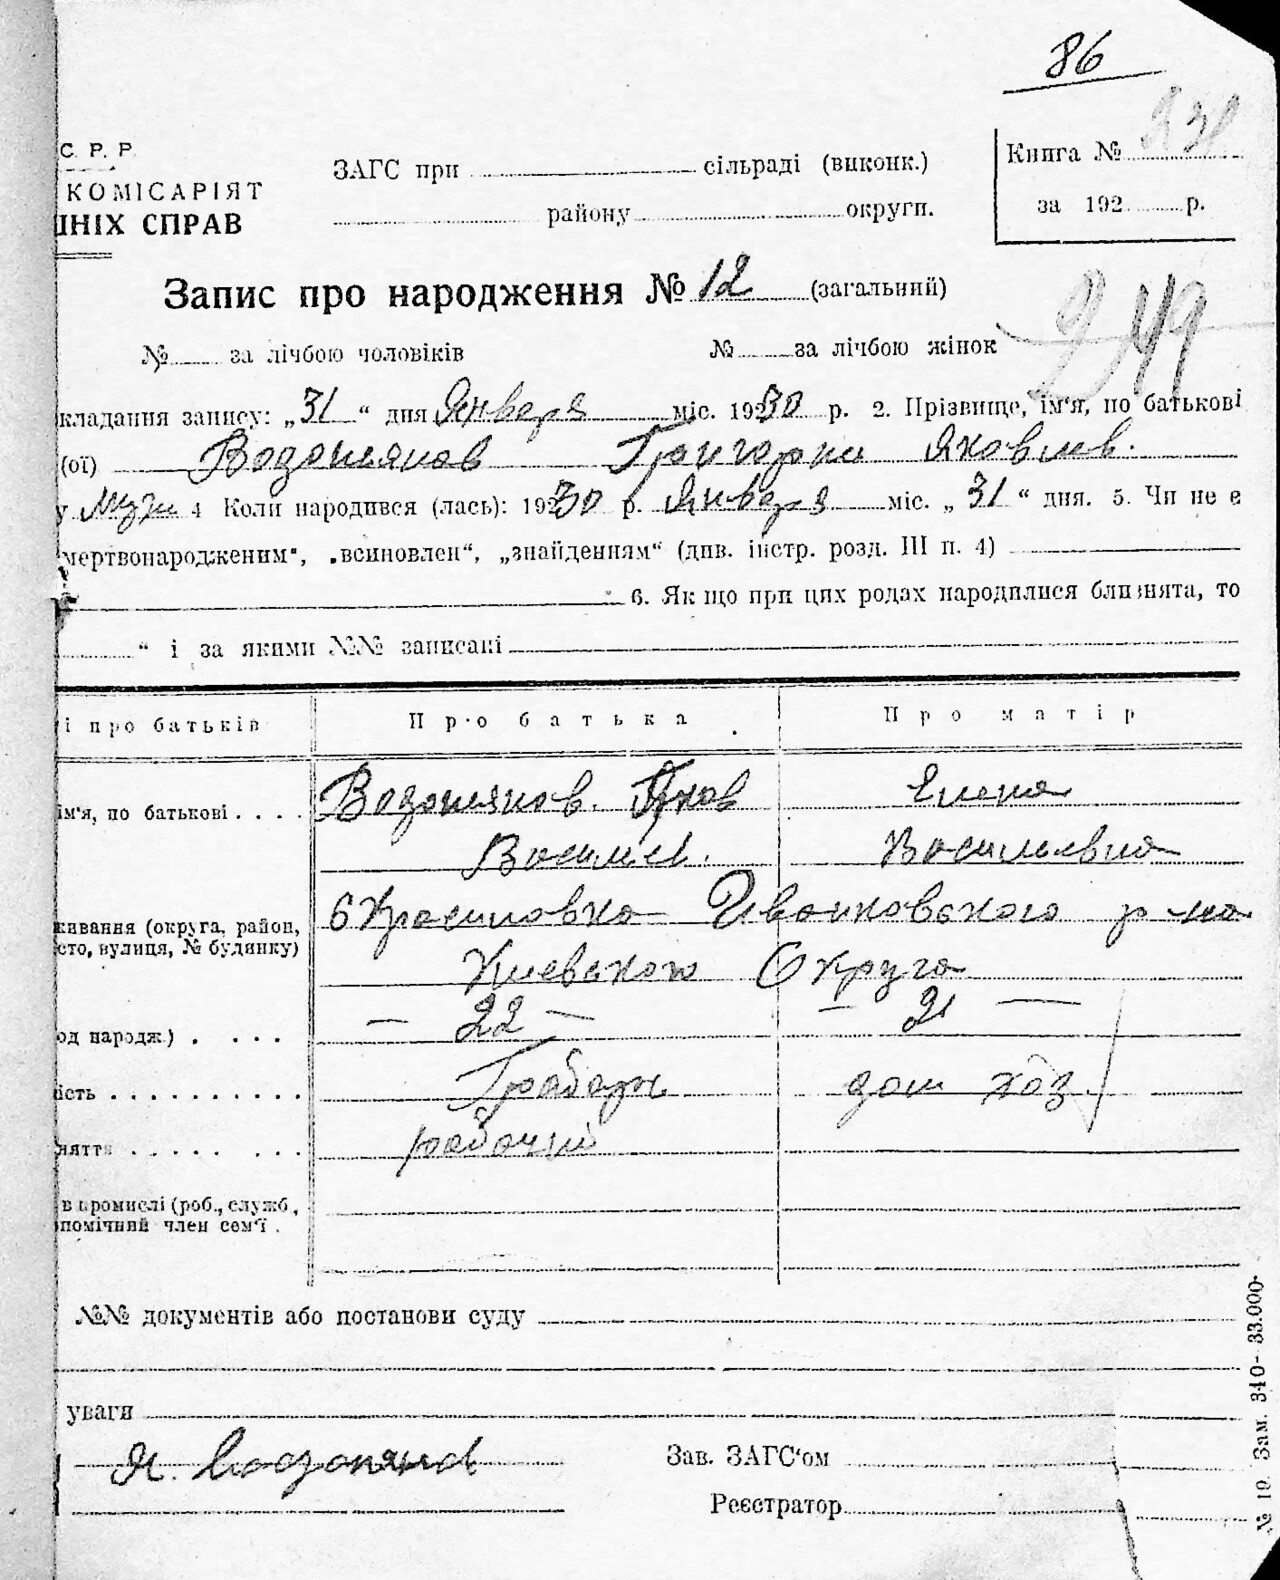 86
С. Р. Р.
КОМІСАРІЯТ
ШНІХ СПРАВ
ЗАГС при сільраді (виконк.)
району округи.
Книга №
за 192 р.
Запис про народження № 12 (загальний)
249
№ за лічбою чоловіків № за лічбою жінок
кладання запису: „31“ дня Января міс. 1930 р. 2. Прізвище, ім'я, по батькові
(ої) Водопьянов Григорий Яковлев.
у Муж 4 Коли народився (лась): 1930 р. Января міс. „31“ дня. 5. Чи не є
мертвонародженим", „всиновлен“, „знайденням“ (див. інстр. розд. III п. 4)
6. Як що при цих родах народилися близнята, то
“ і за якими №№ записані
і про батьків Про батька Про матір
ім'я, по батькові Водопьянов Яков Елена
Васильев. Васильевна
живання (округа, район, Иванковского р-на
сто, вулиця, № будинку) Киевского Округа
од народж.) — 22 — — 21 —
ість дом хоз.
няття рабочий
в промислі (роб., служб.,
помічний член сем'ї.
№№ документів або постанови суду
уваги
Я. Водопянов
Зав. ЗАГС'ом
Реєстратор
№ 19. Зам. 340- 33.000-